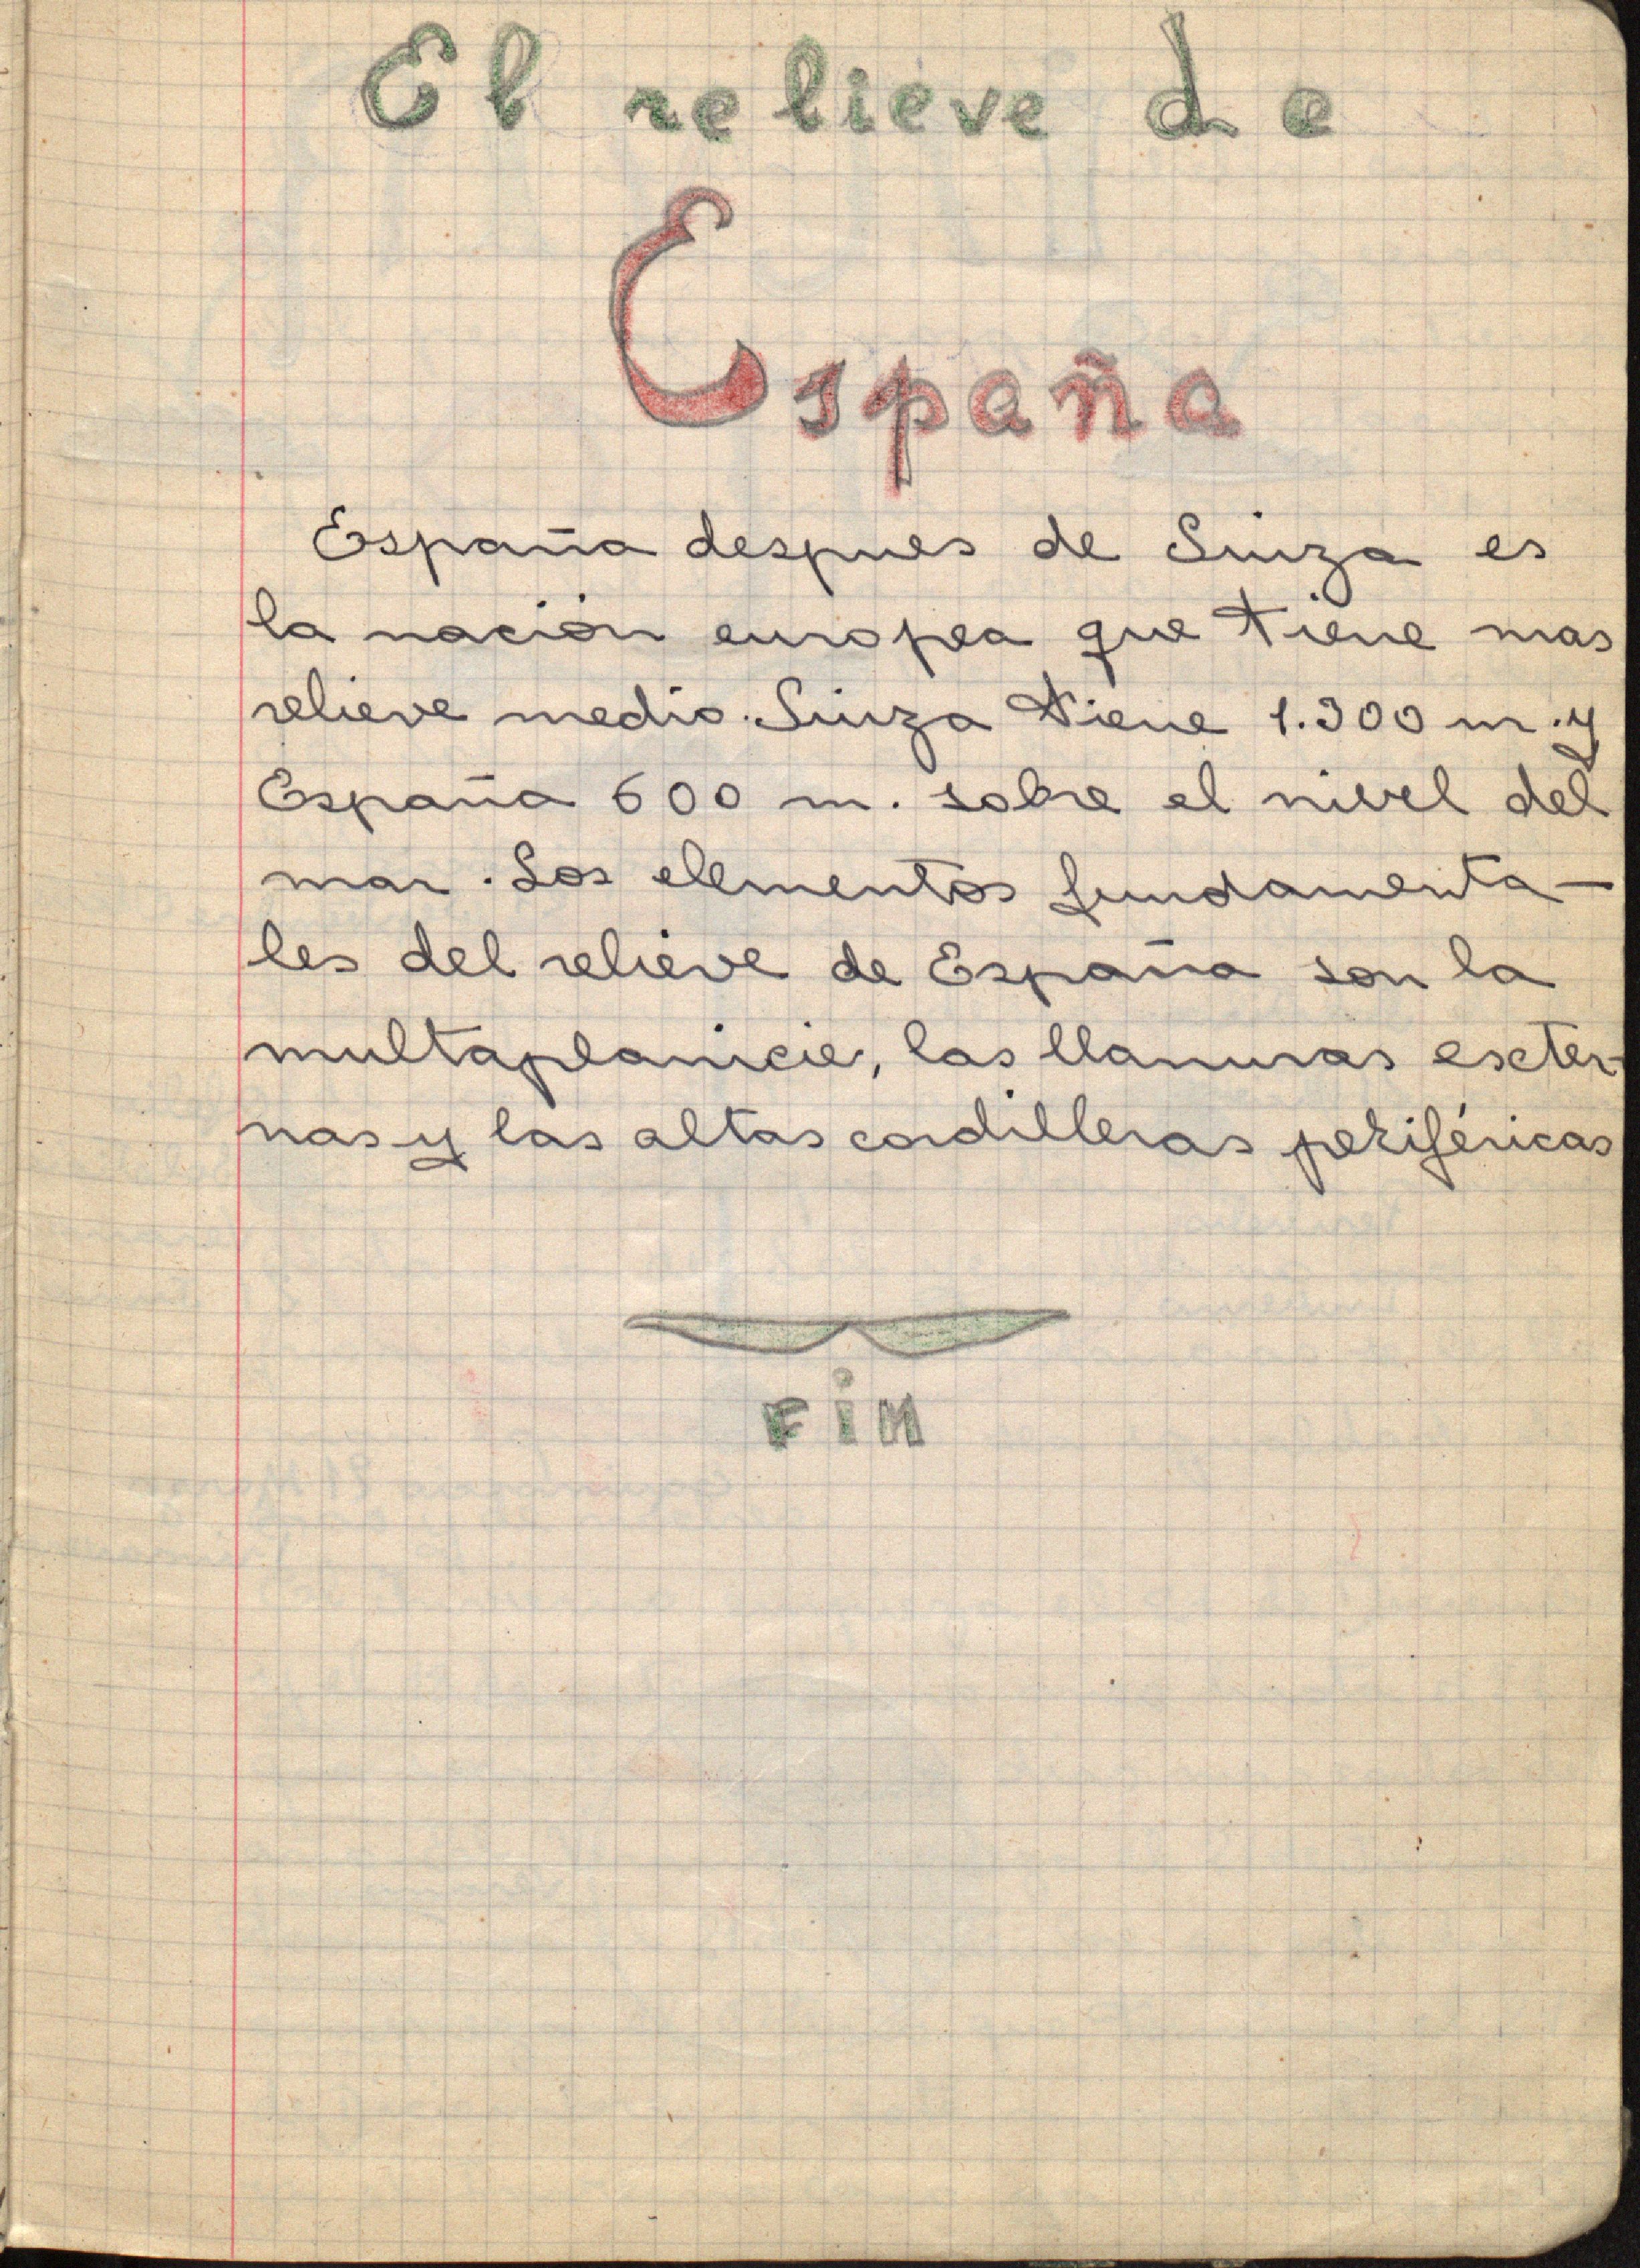 El relieve de
España
España despues de Suiza es
la nación europea que tiene mas
relieve medio. Suiza tiene 1.300 m. y
España 600 m. sobre el nivel del
mar. Los elementos fundamenta-
les del relieve de España son la
multaplanicie, las llanuras exter-
nas y las altas cordilleras periféricas
FiN